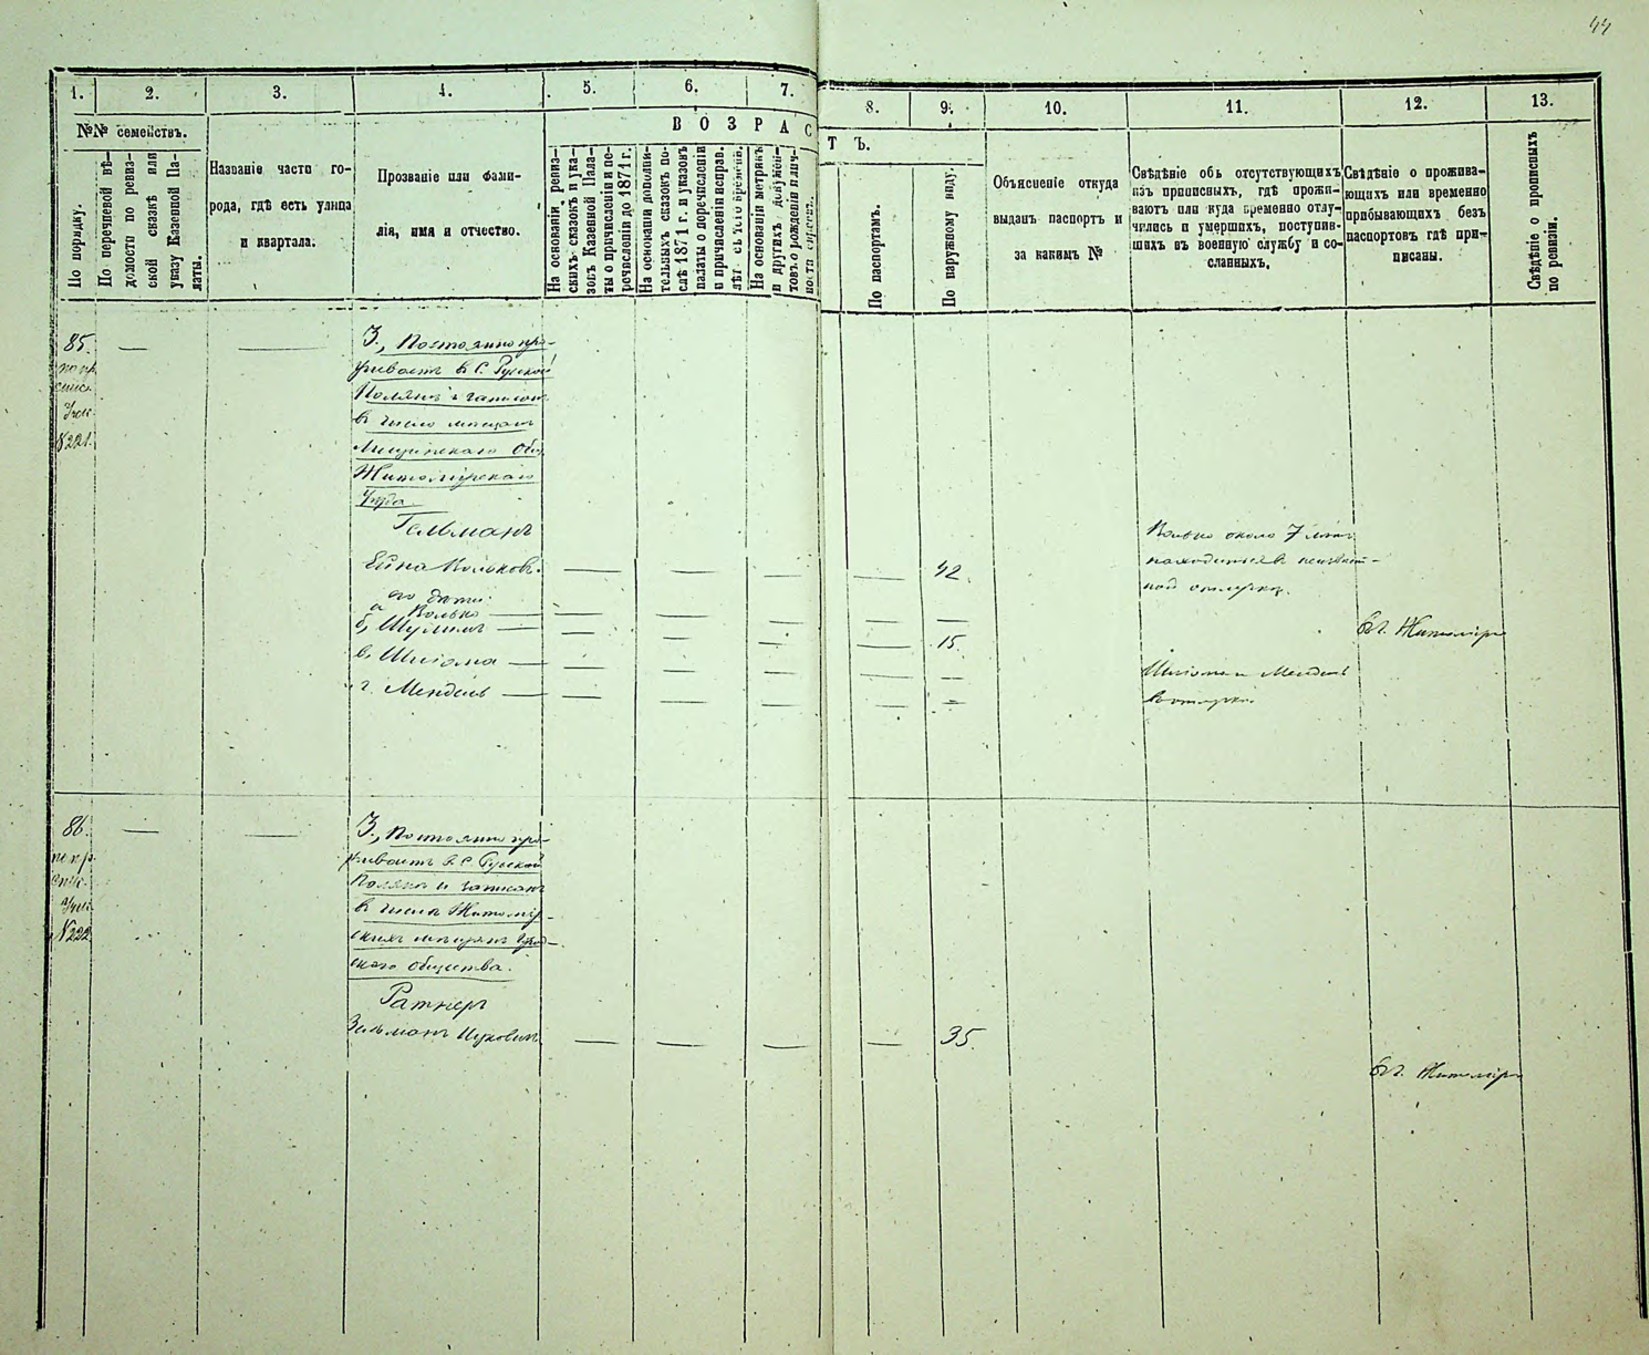 44
1. 2. 3. 4. 5. 6. 7. 8. 9. 10. 11. 12. 13.
№№ семействъ.
По порядку.
По перечневой вѣ-
домости по ревиз-
ской сказкѣ или
указу Казенной Па-
латы.
Названіе части го-
рода, гдѣ есть улица
и квартала.
Прозваніе или фами-
лія, имя и отчество.
ВОЗРАСТЪ.
На основаніи ревиз-
скихъ сказокъ и ука-
зовъ Казенной Пала-
ты о причисленіи и пе-
речисленіи до 1871 г.
На основаніи дополни-
тельныхъ сказокъ по-
слѣ 1871 г. и указовъ
палаты о перечисленіи
и причисленіи исправ.
лѣт. съ того времени.
На основаніи метрикъ
и другихъ докумен-
товъ о рожденіи и лич-
ности справк.
По паспортамъ.
По наружному виду.
Объясненіе откуда
выданъ паспортъ и
за какимъ №
Свѣдѣніе объ отсутствующихъ
изъ приписныхъ, гдѣ прожи-
ваютъ или куда временно отлу-
чились и умершихъ, поступив-
шихъ въ военную службу и со-
сланныхъ.
Свѣдѣніе о прожива-
ющихъ или временно
прибывающихъ безъ
паспортовъ гдѣ при-
писаны.
Свѣдѣніе о прописныхъ
по ревизіи.
85. — — З., Постоянно про-
живаетъ въ С. Русской
Полянѣ и записанъ
въ число мещанъ
Общ.
Житомірскаго
Уезда
№221.
Гельманъ
Волько около 7 лѣтъ
Ейна Вольковъ. — — — — 42 находиться въ неизвест-
ной отлучкѣ.
его дети:
а Волько — — — — — —
б, Шулимъ — — — — — 15. въ г. Житомірѣ
в. Шлiома — — — — — — Шлiома и Мендель
г. Мендель — — — — — — въ отлучкѣ.
86. — — З., Постоянно про-
живаетъ в. С. Русской
Полянѣ и записанъ
въ число Житомір-
скихъ мещанъ город-
скаго общества.
№222
Ратнеръ
Зельманъ Ицковичъ — — — — 35.
въ г. Житомірѣ